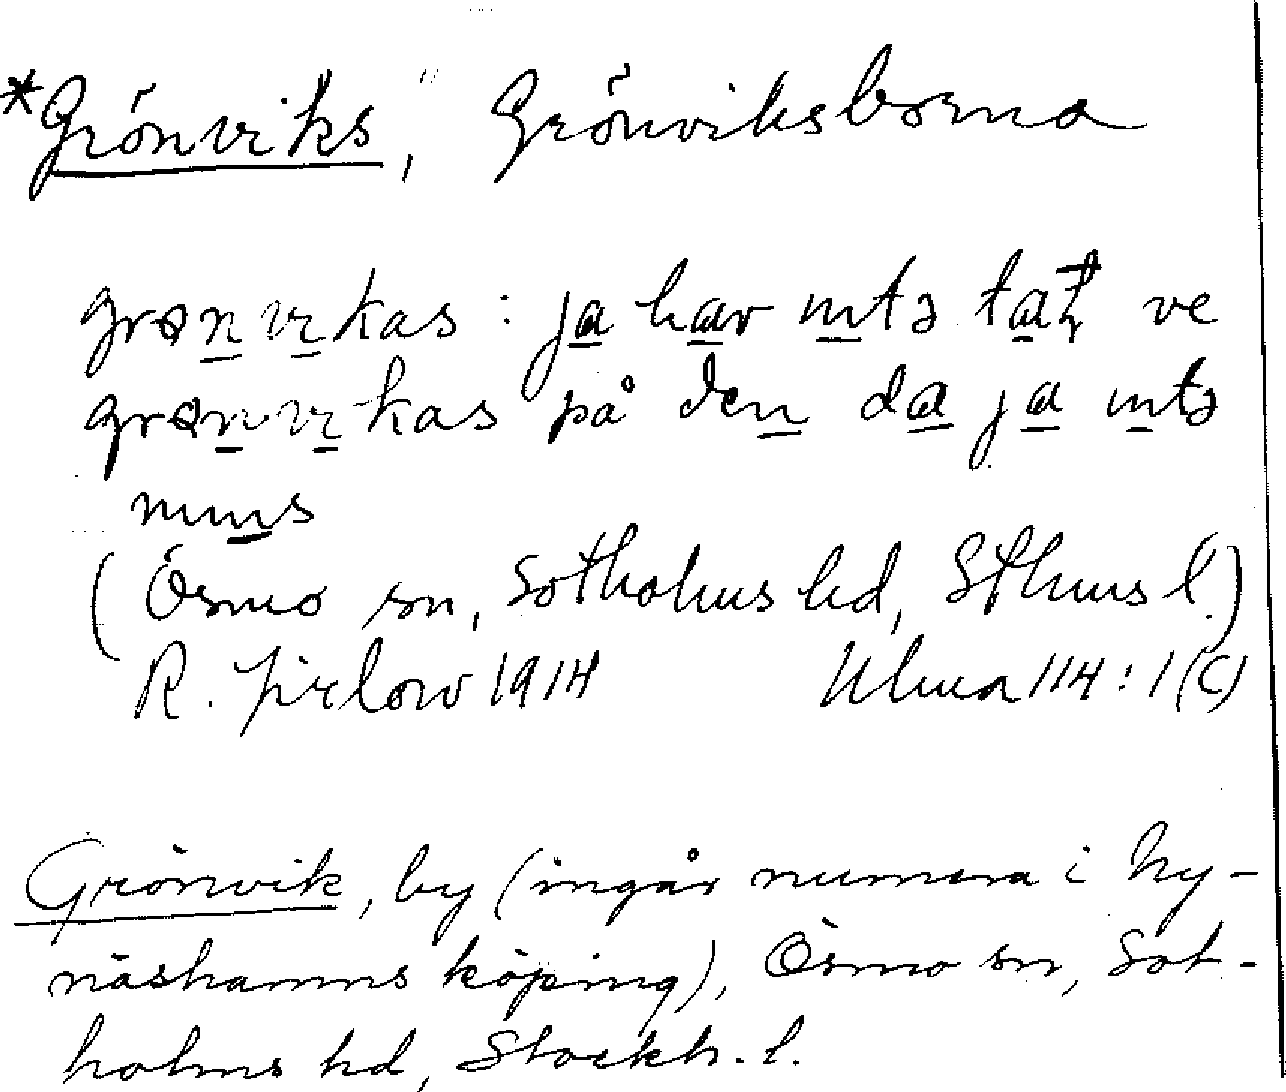 *Grönviks, Grönviksborna
grønvikas: ja har intə tat̄ ve
grønvikas på den da ja intə
mins
(Ösmo sn, Sotholms hd, Sthms l.)
R. Jirlow 1914 Ulma 114:1(C)
Grönvik, by (ingår numera i Ny-
näshamns köping), Ösmo sn, Sot-
holms hd, Stockh. l.